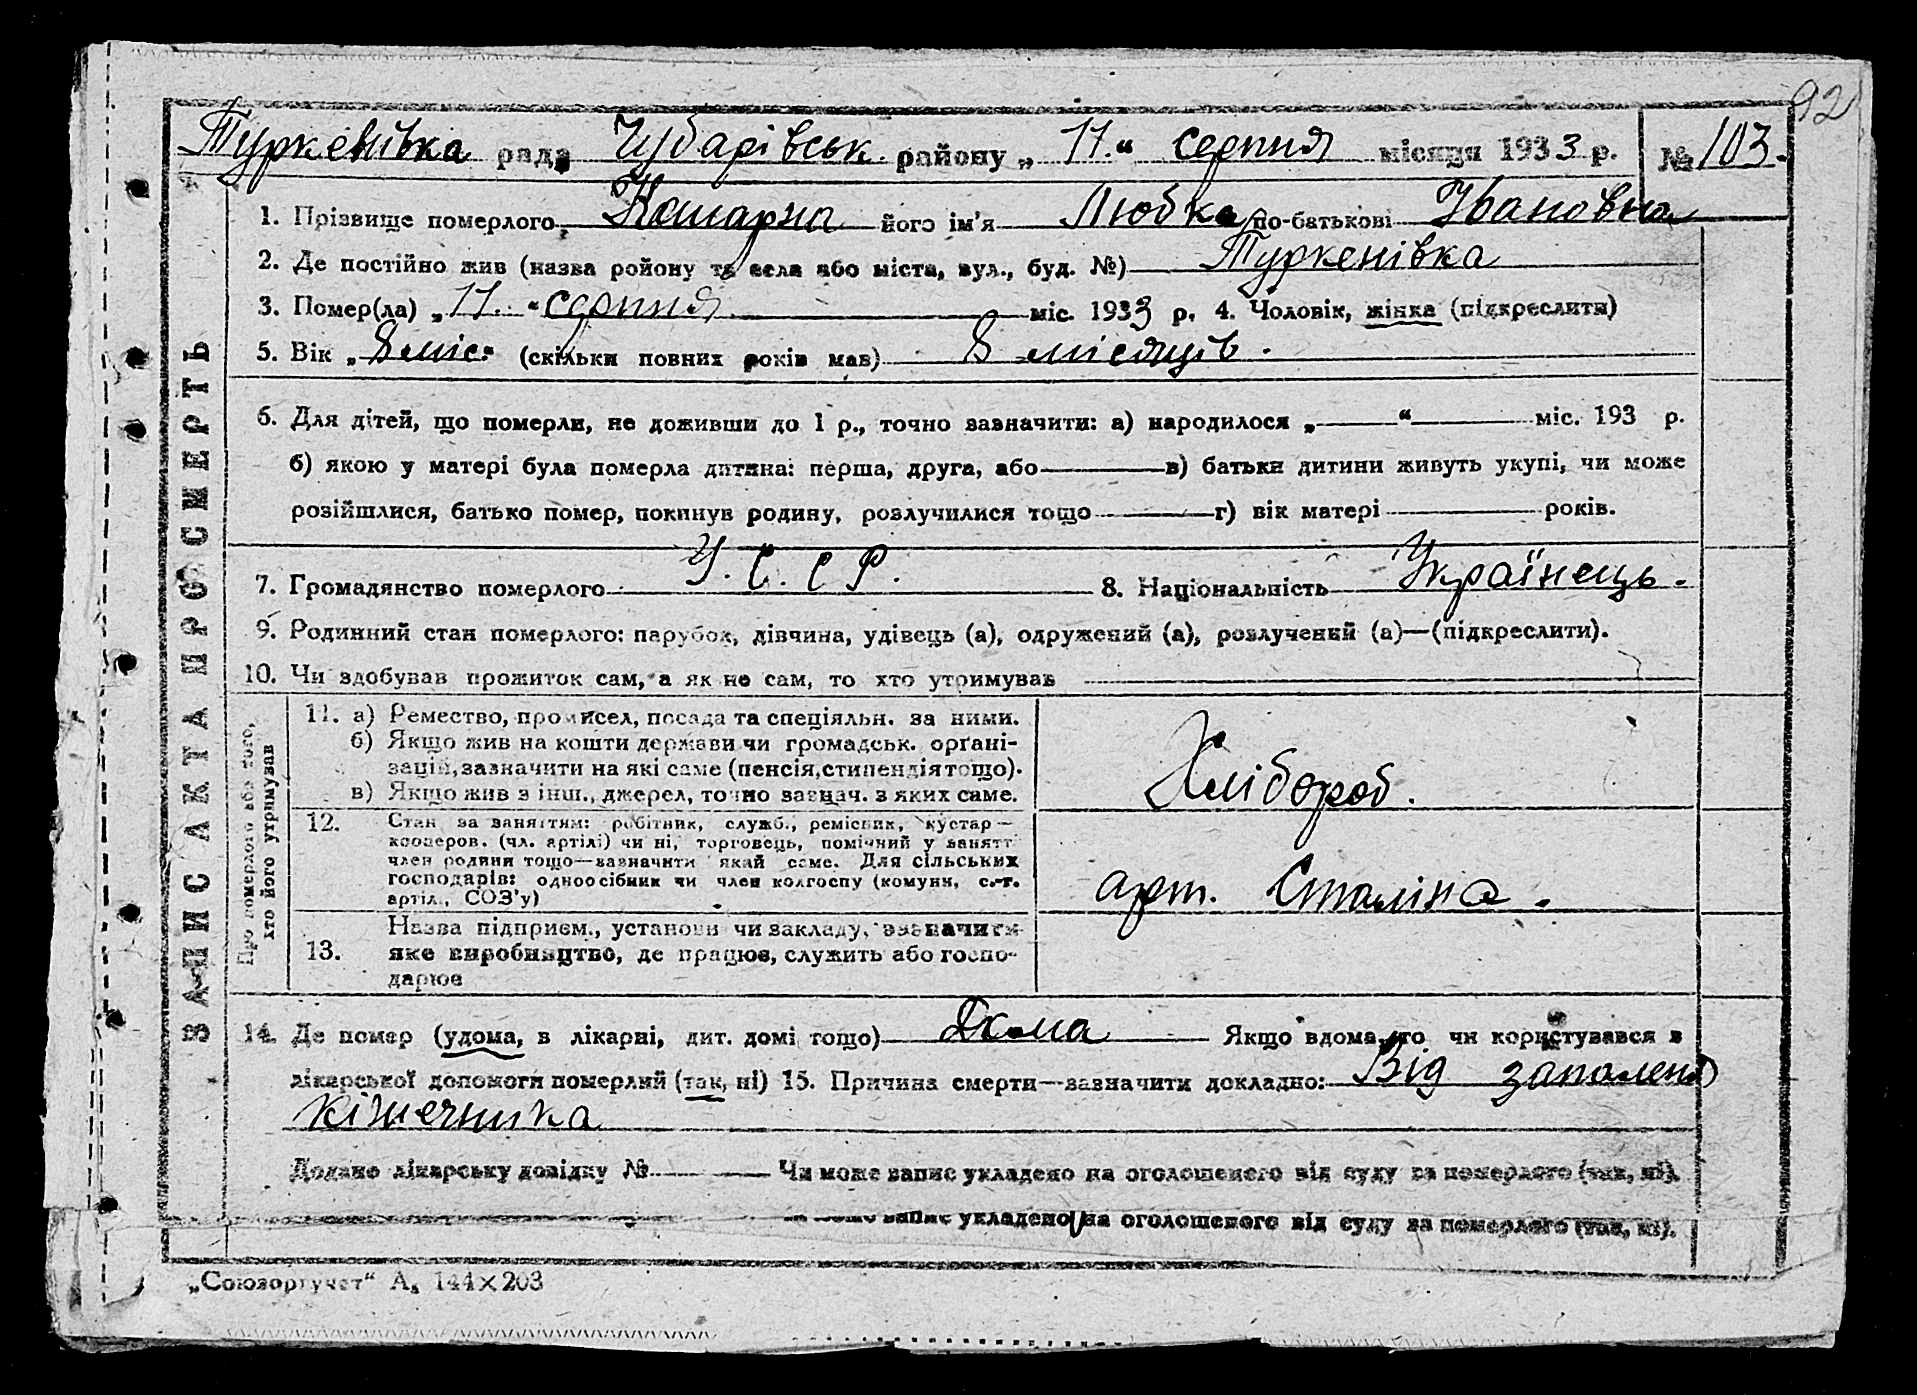 92
Туркенівка рада Чубарівськ. району „ 11. “ серпня місяця 1933 р. № 103.
ЗАПИС АКТА ПРО СМЕРТЬ
1. Прізвище померлого Кошарна його ім'я Любка по-батькові Івановна
2. Де постійно жив (назва району та села або міста, вул., буд. №) Туркенівка
3. Помер(ла) „ 11. “ серпня міс. 1933 р. 4. Чоловік, жінка (підкреслити)
5. Вік „ 8 міс. (скільки повних років мав) 8 місяців.
6. Для дітей, що померли, не доживши до 1 р., точно зазначити: а) народилося „ “ міс. 193 р.
б) якою у матері була померла дитина: перша, друга, або в) батьки дитини живуть укупі, чи може
розійшлися, батько помер, покинув родину, розлучилися тощо г) вік матері років.
7. Громадянство померлого У. С. С Р. 8. Національність Українець.
9. Родинний стан померлого: парубок, дівчина, удівець (а), одружений (а), розлучений (а)—(підкреслити).
10. Чи здобував прожиток сам, а як не сам, то хто утримував
Про померлого або того, хто його утримував
11. а) Ремество, промисел, посада та спеціяльн. за ними.
б) Якщо жив на кошти держави чи громадськ. орґані-
зацій, зазначити на які саме (пенсія, стипендія тощо).
в) Якщо жив з інш., джерел, точно зазнач. з яких саме.
Хлібороб.
12. Стан за заняттям: робітник, служб., ремісник, кустар—
кооперов. (чл. артілі) чи ні, торговець, помічний у занятт
член родини тощо—зазначити який саме. Для сільських
господарів: одноосібник чи член колгоспу (комуни, с.-г.
артіл., СОЗ'у)
арт. Сталіна.
13. Назва підприєм., установи чи закладу, зазначити
яке виробництво, де працює, служить або госпо-
дарює
14. Де помер (удома, в лікарні, дит. домі тощо) Дома Якщо вдома, то чи користувався з
лікарської допомоги померлий (так, ні) 15. Причина смерти—зазначити докладно: Від запаленя
кішечника
Додано лікарську довідку № Чи може запис укладено на оголошеного від суду за померлого (так, ні).
запис укладено на оголошеного від суду за померлого (так, ні).
„Союзоргучет“ А₅ 144×203